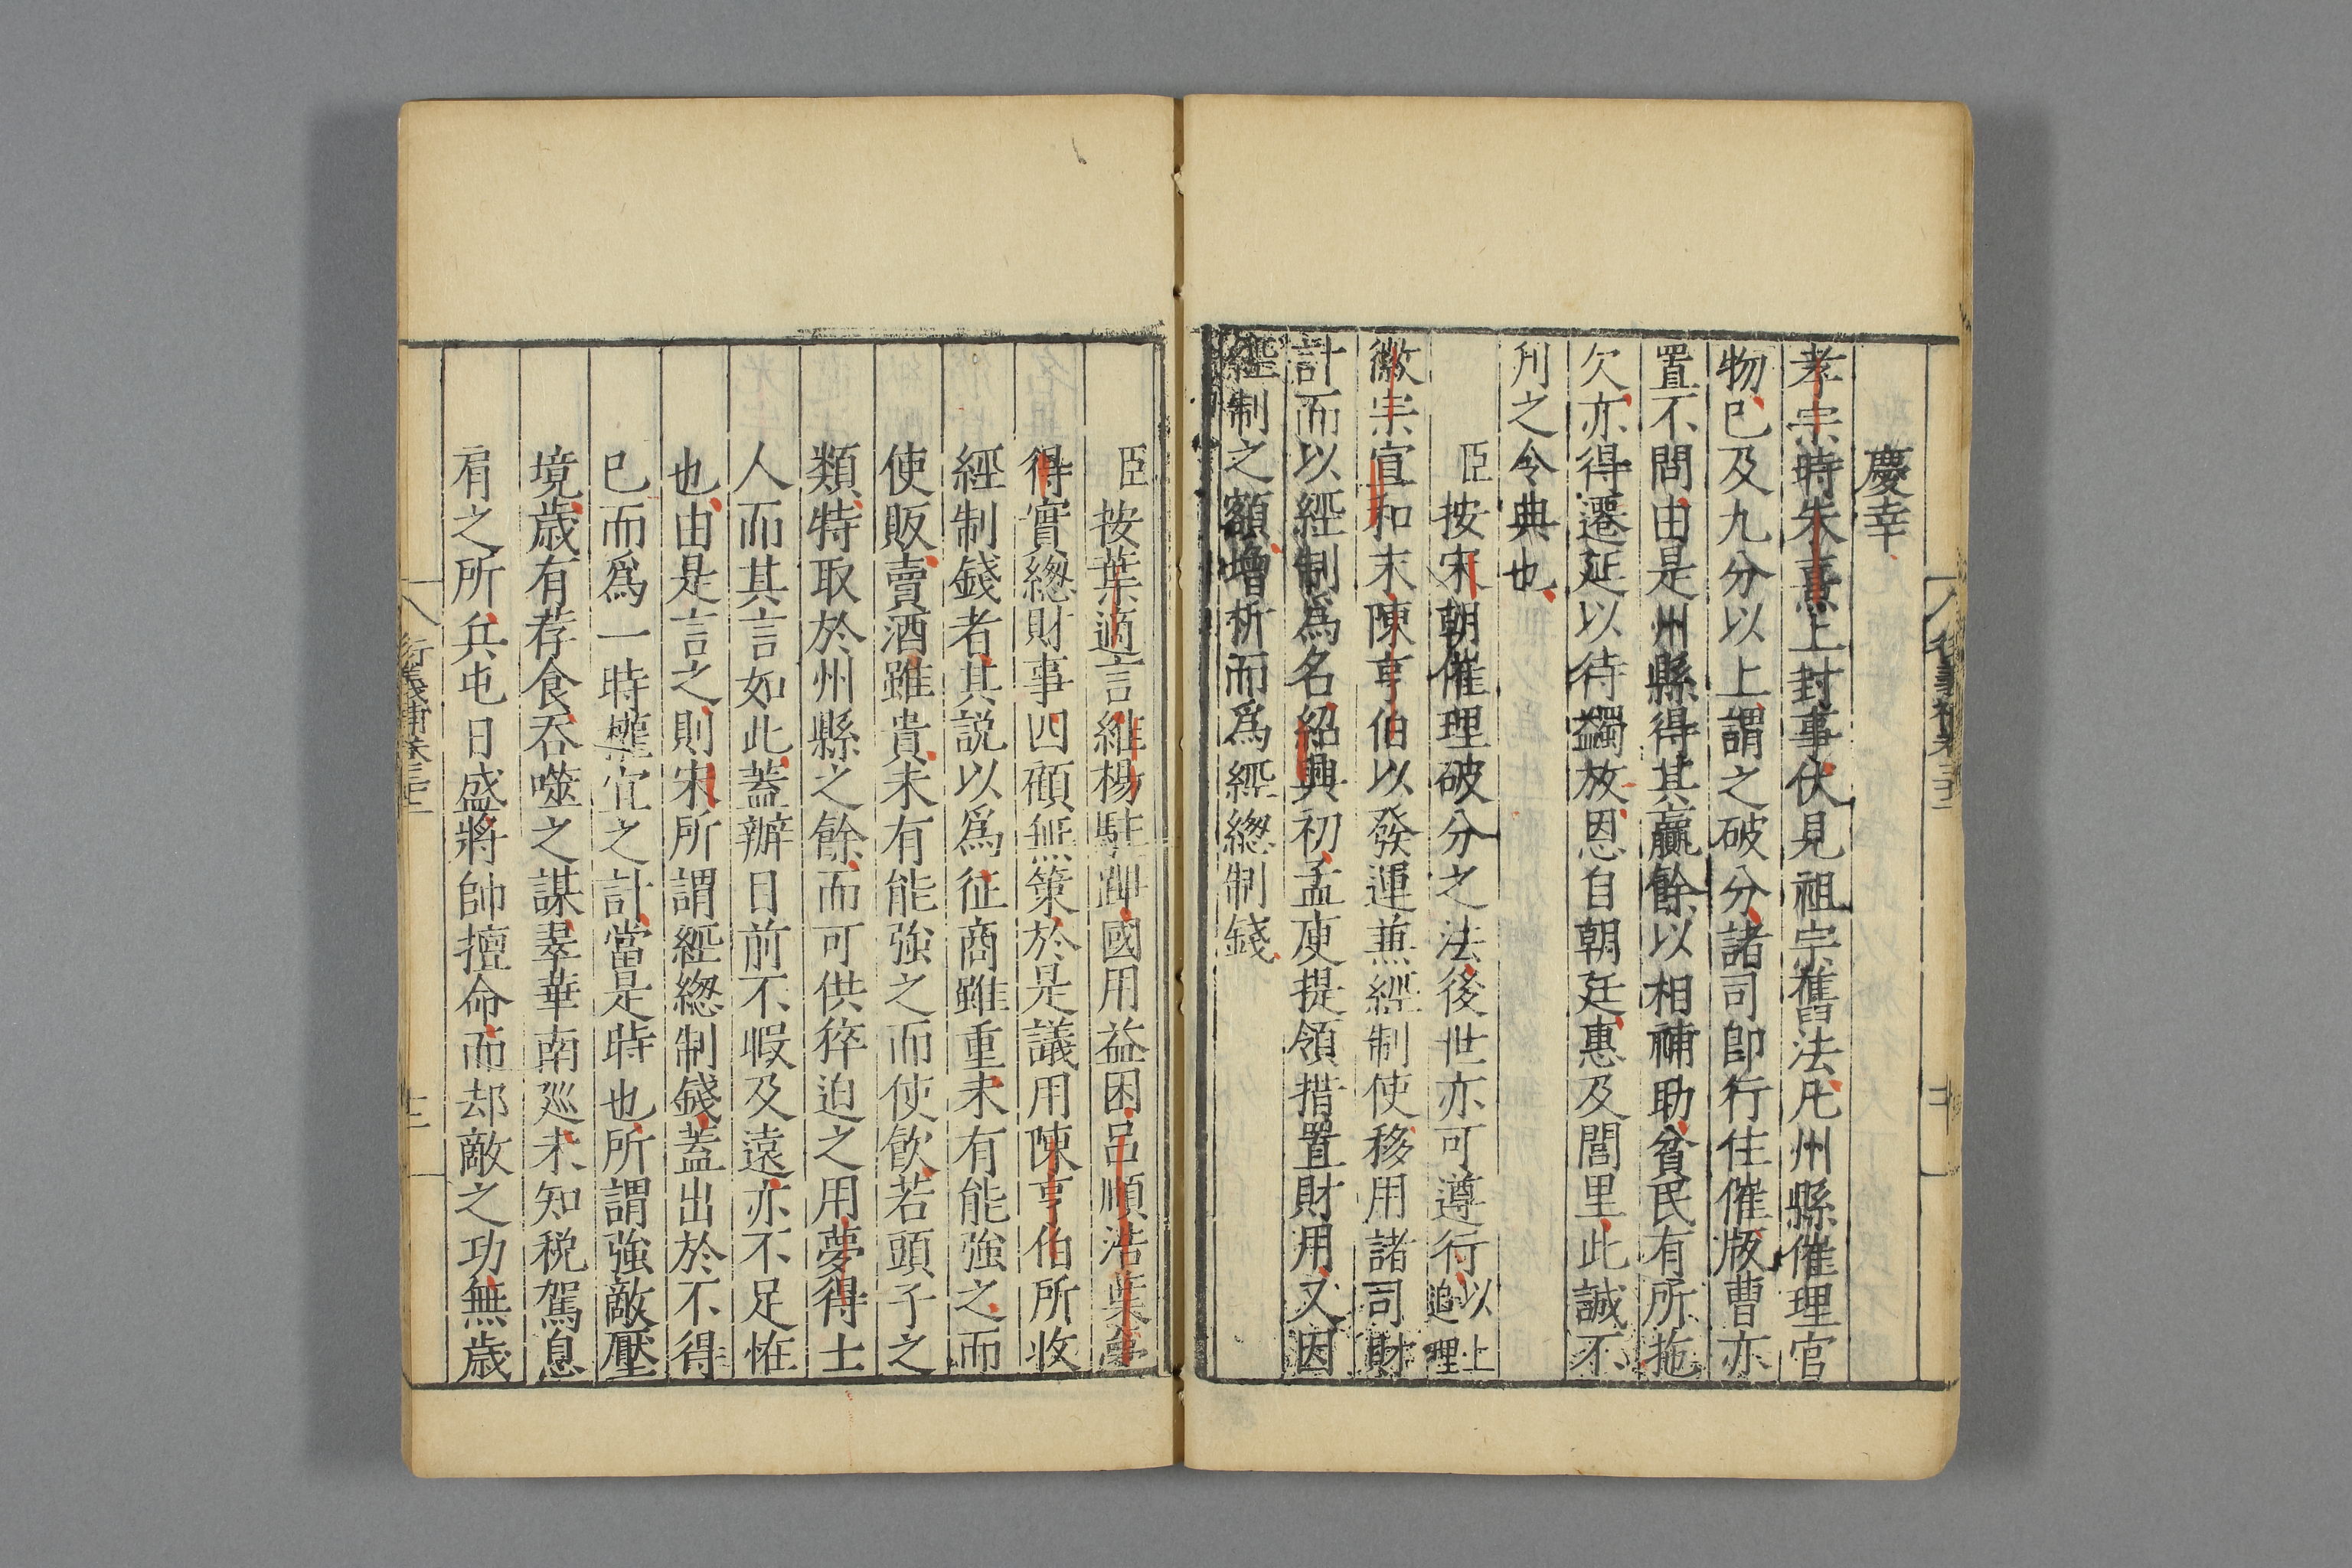 慶幸
孝宗時朱熹上封事伏見祖宗舊法凡州縣催理官
物已及九分以上謂之破分諸司卽行住催版曹亦
置不問由是州縣得其贏餘以相補助貧民有所拖
欠亦得遷延以待蠲放恩自朝廷惠及閭里此誠不
刋之令典也
臣按宋朝催理破分之法後世亦可遵行以上追理
徽宗宣和末陳亨伯以發運兼經制使移用諸司財
計而以經制爲名紹興初孟庾提領措置財用又因
經制之額增析而爲經總制錢
臣按葉適言維楊駐蹕國用益困呂順浩葉夢
得實緫財事四顧無策於是議用陳亨伯所收
經制錢者其説以爲征商雖重未有能強之而
使販賣酒雖貴未有能強之而使飲若頭子之
類特取於州縣之餘而可供猝迫之用夢得士
人而其言如此蓋辦目前不暇及遠亦不足恠
也由是言之則宋所謂經緫制錢蓋出於不得
已而爲一時權宜之計當是時也所謂強敵壓
境歲有荐食吞噬之謀翠華南廵未知稅駕息
肩之所兵屯日盛將帥擅命而却敵之功無歲
衍義補卷三十二